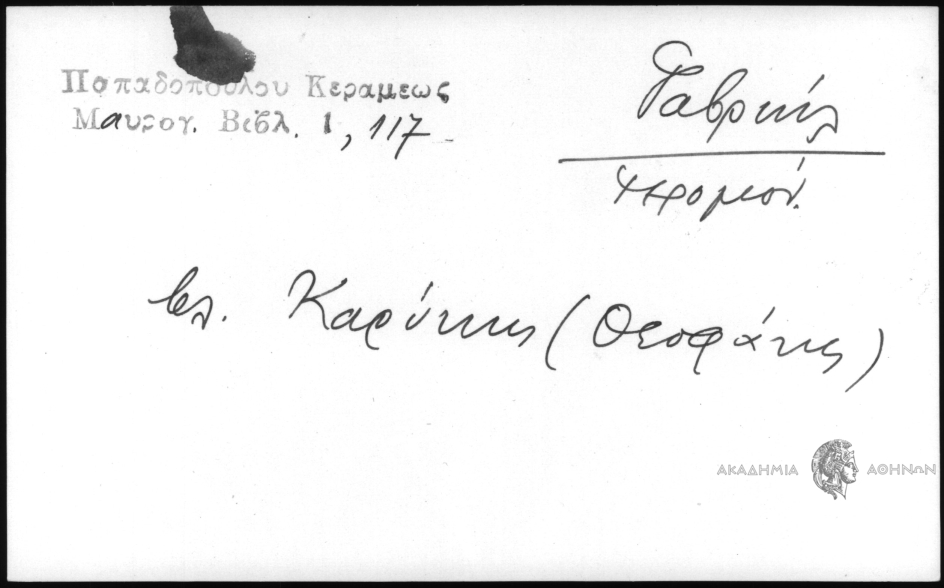 Παπαδοπούλου Κεραμεως
Μαυρογ. Βιβλ. 1, 117
Γαβριήλ
ἱερομόν.
βλ. Καρύκης (Θεοφάνης)
ΑΚΑΔΗΜΙΑ ΑΘΗΝΩΝ